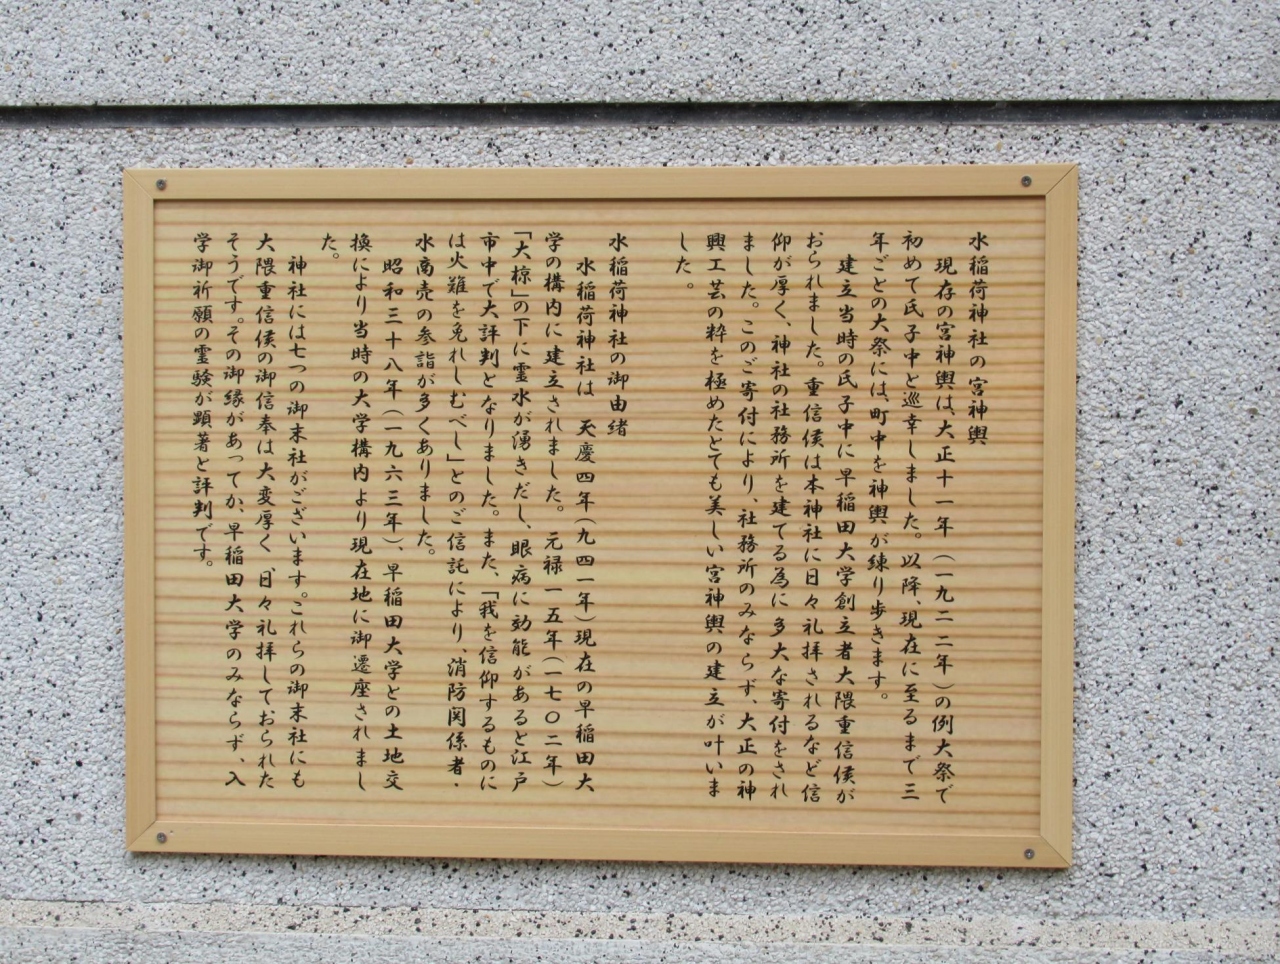 水稲荷神社の宮神輿
現存の宮神輿は、大正十一年（一九二二年）の例大祭で
初めて氏子中と巡幸しました。以降、現在に至るまで三
年ごとの大祭には、町中を神輿が練り歩きます。
建立当時の氏子中に早稲田大学創立者大隈重信侯が
おられました。重信侯は本神社に日々礼拝されるなど信
仰が厚く、神社の社務所を建てる為に多大な寄付をされ
ました。このご寄付により、社務所のみならず、大正の神
輿工芸の粋を極めたとても美しい宮神輿の建立が叶いま
した。
水稲荷神社の御由緒
水稲荷神社は 天慶四年（九四一年）現在の早稲田大
学の構内に建立されました。 元禄一五年（一七〇二年）
「大椋」の下に霊水が湧きだし、眼病に効能があると江戸
市中で大評判となりました。また、「我を信仰するものに
は火難を免れしむべし」とのご信託により、消防関係者・
水商売の参詣が多くありました。
昭和三十八年（一九六三年）、早稲田大学との土地交
換により当時の大学構内より現在地に御遷座されまし
た。
神社には七つの御末社がございます。これらの御末社にも
大隈重信侯の御信奉は大変厚く、日々礼拝しておられた
そうです。その御縁があってか、早稲田大学のみならず、入
学御祈願の霊験が顕著と評判です。